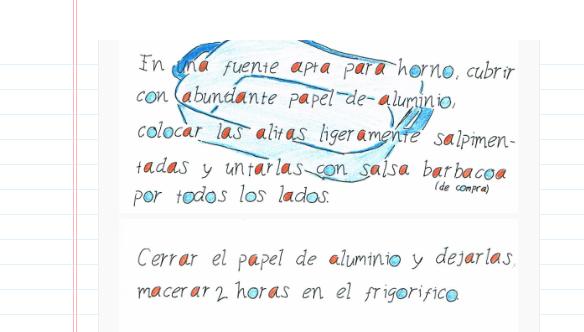 En una fuente apta para horno, cubrir
con abundante papel de aluminio,
colocar las alitas ligeramente salpimen-
tadas y untarlas con salsa barbacoa
(de compra)
por todos los lados.
Cerrar el papel de aluminio y dejarlas
macerar 2 horas en el frigorifico